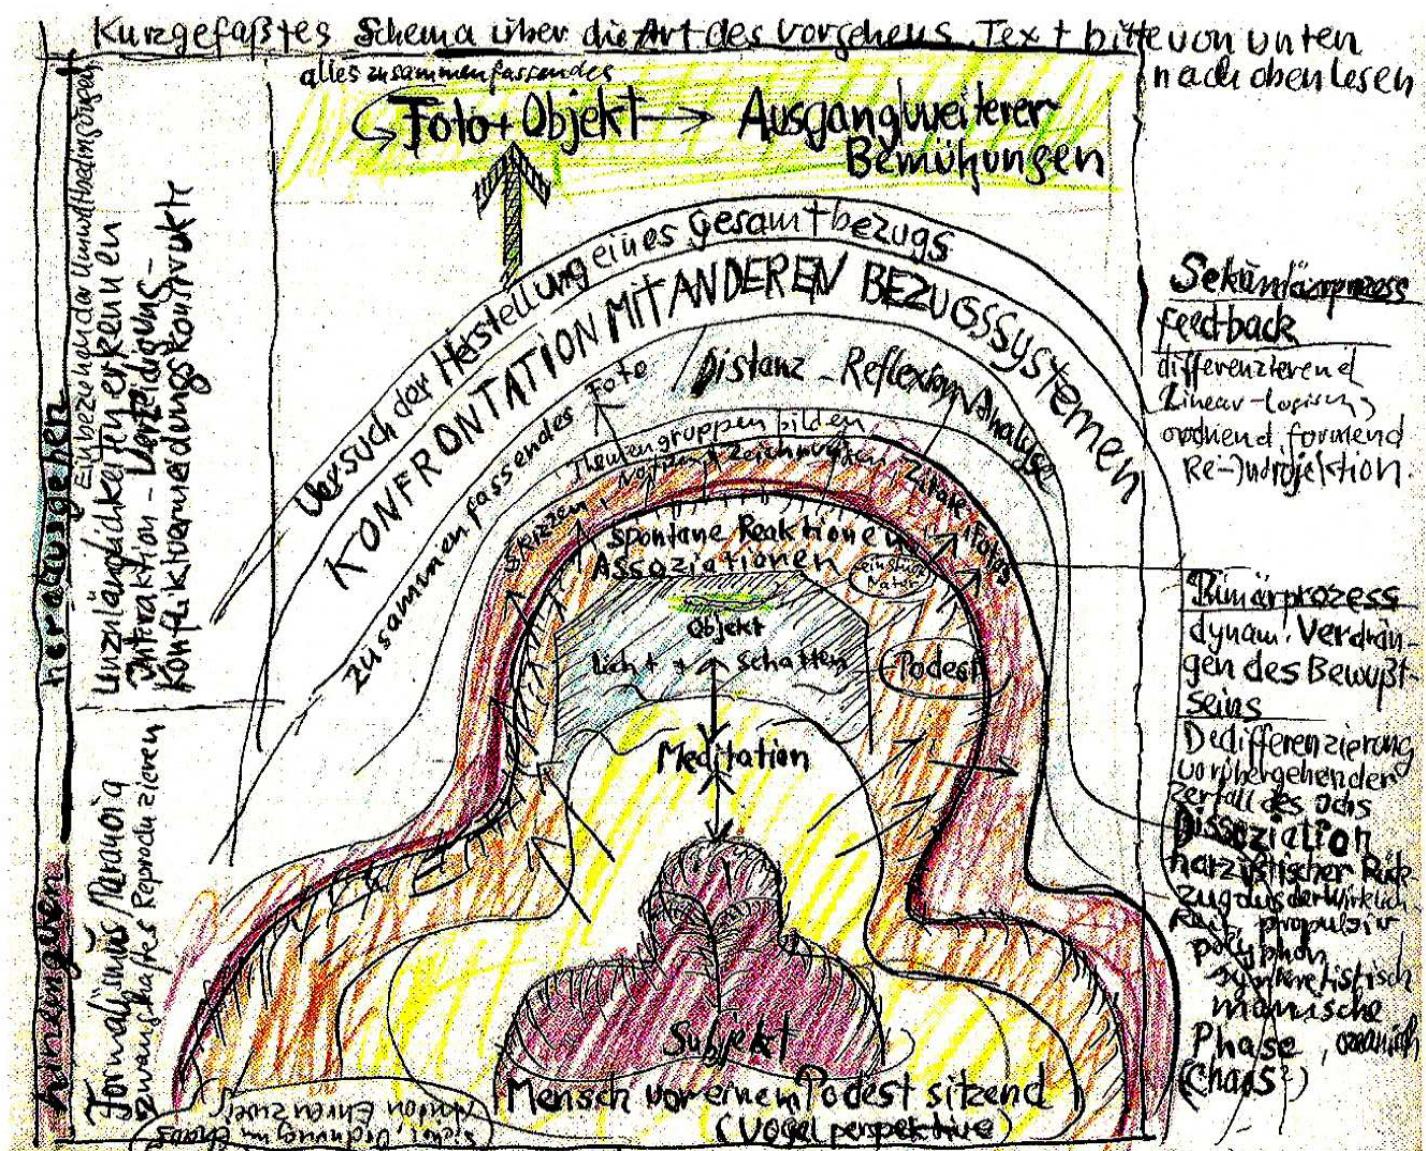 Kurzgefaßtes Schema über die Art des Vorgehens. Text bitte von unten
nach oben lesen
alles zusammenfassendes
Foto + Objekt → Ausgang weiterer
Bemühungen
Versuch der Herstellung eines Gesamtbezugs
KONFRONTATION MIT ANDEREN BEZUGSSYSTEMEN
zusammenfassendes Foto / Distanz - Reflexion Analyse
Themengruppen bilden
Skizzen, Zeichnungen, Zitate, Fotos
Spontane Reaktionen
Assoziationen
Objekt
Licht Schatten
Podest
Meditation
Subjekt
Mensch vor einem Podest sitzend
(Vogelperspektive)
herausgehen
Einbeziehen der Umweltbedingungen
Unzulänglichkeiten erkennen
Interaktion - Verteidigungs-
Konfliktvermeidungskonstrukte
hineingehen
Formalismus / Paranoia
zwanghaftes Reproduzieren
Sekundärprozess
feedback
differenzierend
Linear-logisch
ordnend formend
Re-Introjektion
Primärprozess
dynam. Verdrän-
gen des Bewußt-
seins
Dedifferenzierung
vorübergehender
Zerfall des Ichs
Dissoziation
narzistischer Rück-
zug aus der Wirklich
keit, propulsiv
polyphon
synkretistisch
manische
Phase, ozeanisch
(Chaos?)